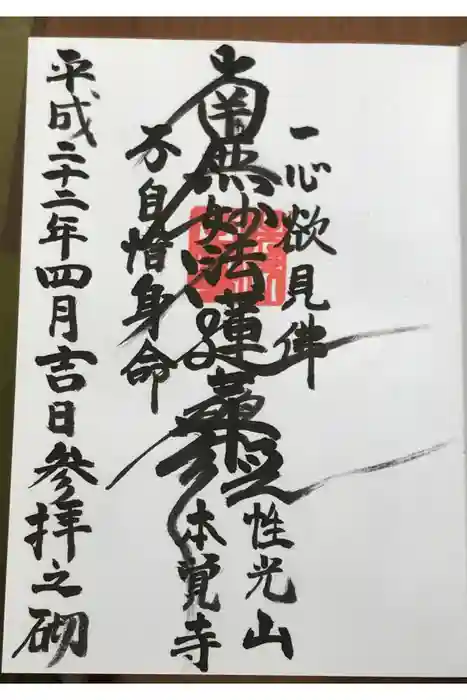 一心欲見佛
性光山
南無妙法蓮華経
本覚寺
不自惜身命
平成二十二年四月吉日参拝之砌